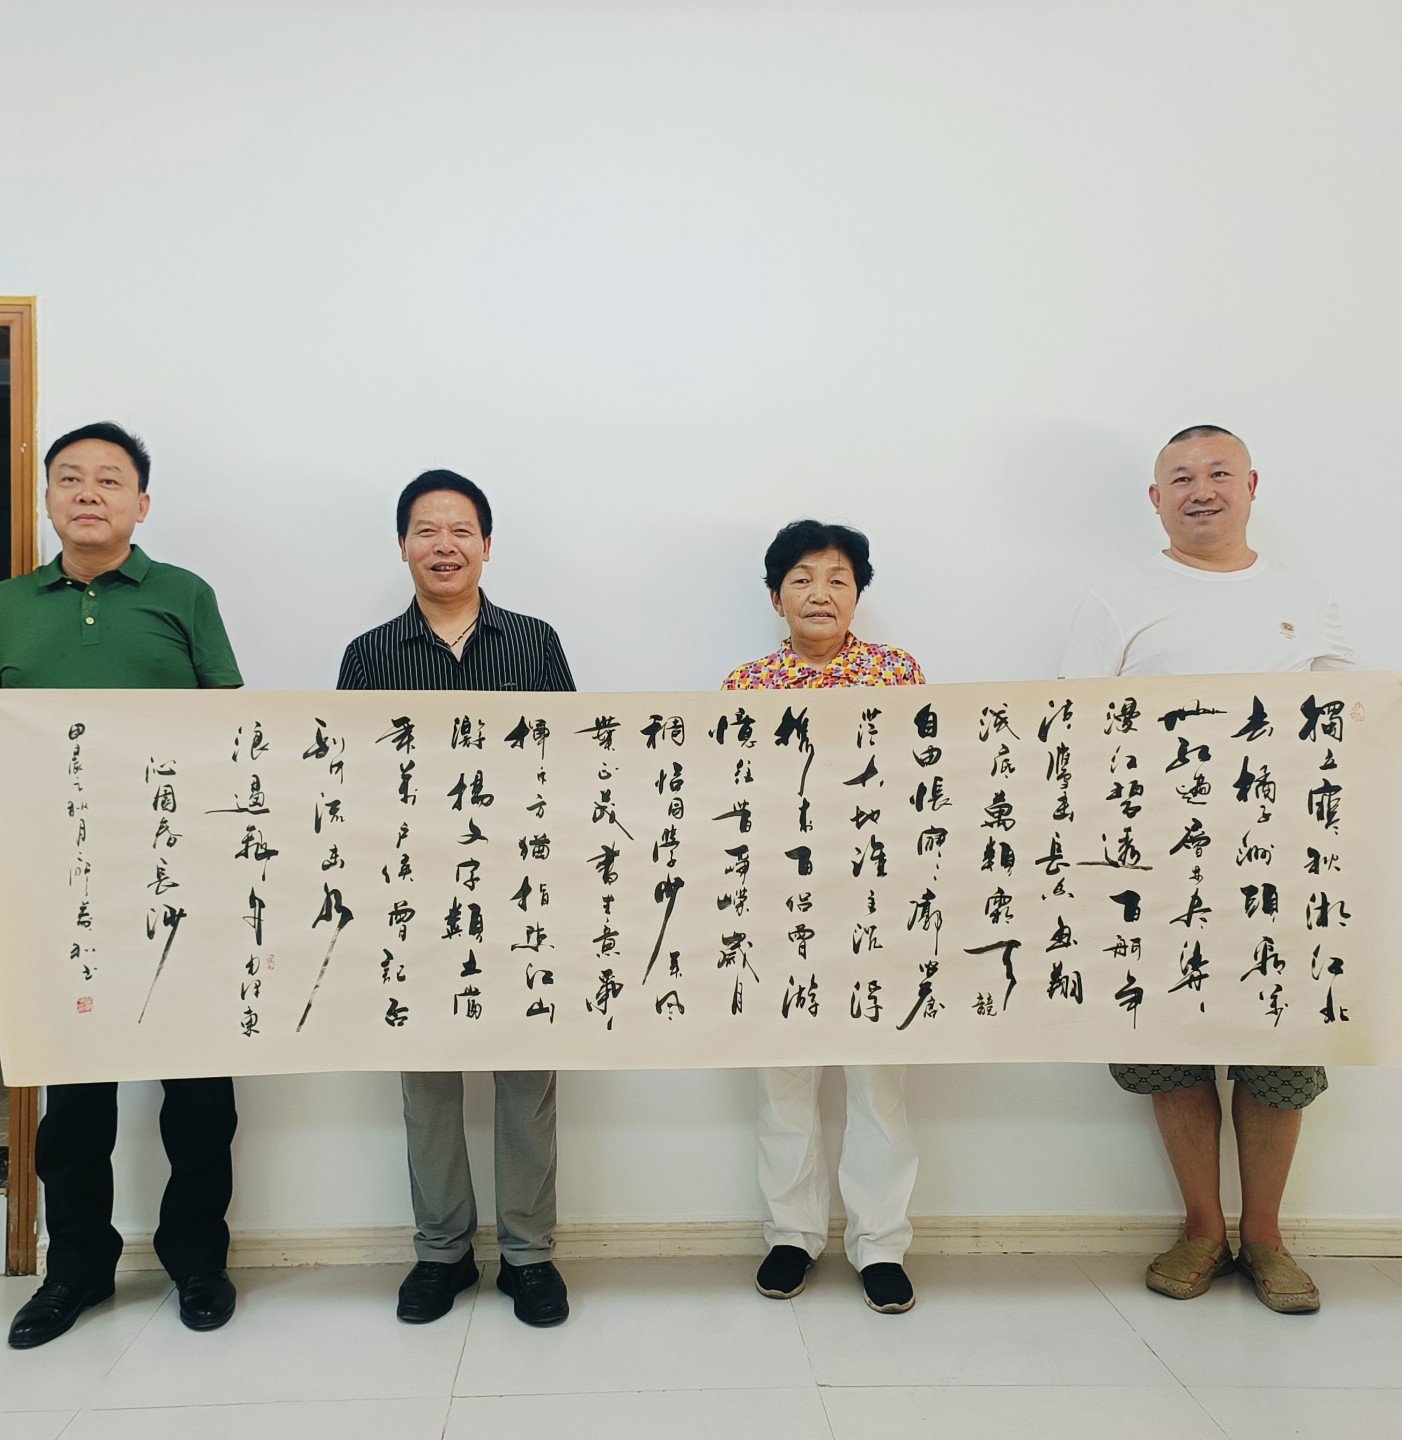 獨立寒秋湘江北
去橘子洲頭看萬
山紅遍層林盡染
漫江碧透百舸爭
流鷹擊長空魚翔
淺底萬類霜天競
自由悵寥廓問蒼
茫大地誰主沉浮
攜來百侶曾游
憶往昔崢嶸歲月
稠恰同學少年風
華正茂書生意氣
揮斥方遒指點江山
激揚文字糞土當
年萬戶侯曾記否
到中流擊水
浪遏飛舟 毛澤東
沁園春長沙
甲辰之秋月